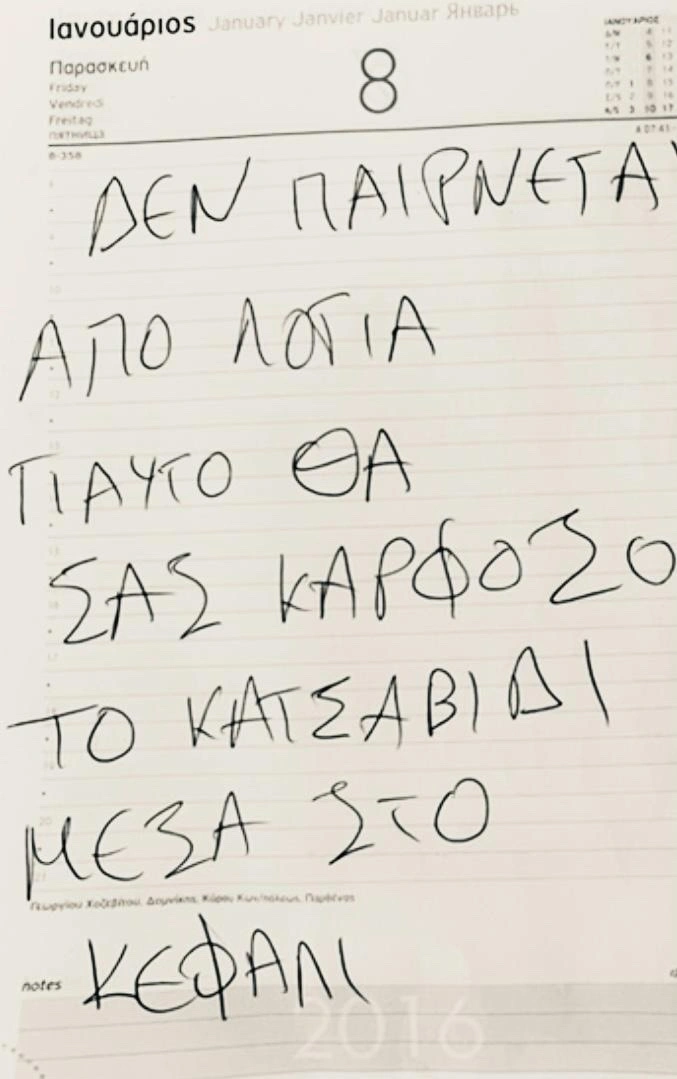 Ιανουάριος January Janvier Januar Январь
Παρασκευή
Friday
Vendredi
Freitag
пятница
8
ΙΑΝΟΥΑΡΙΟΣ
8-358
ΔΕΝ ΠΑΙΡΝΕΤΑΙ
ΑΠΟ ΛΟΓΙΑ
ΓΙΑΥΤΟ ΘΑ
ΣΑΣ ΚΑΡΦΟΣΟ
ΤΟ ΚΑΤΣΑΒΙΔΙ
ΜΕΣΑ ΣΤΟ
Γεωργίου Χοζεβίτου, Δομνίκης, Κύρου Κων/πόλεως, Παρθένας
ΚΕΦΑΛΙ
notes
2016